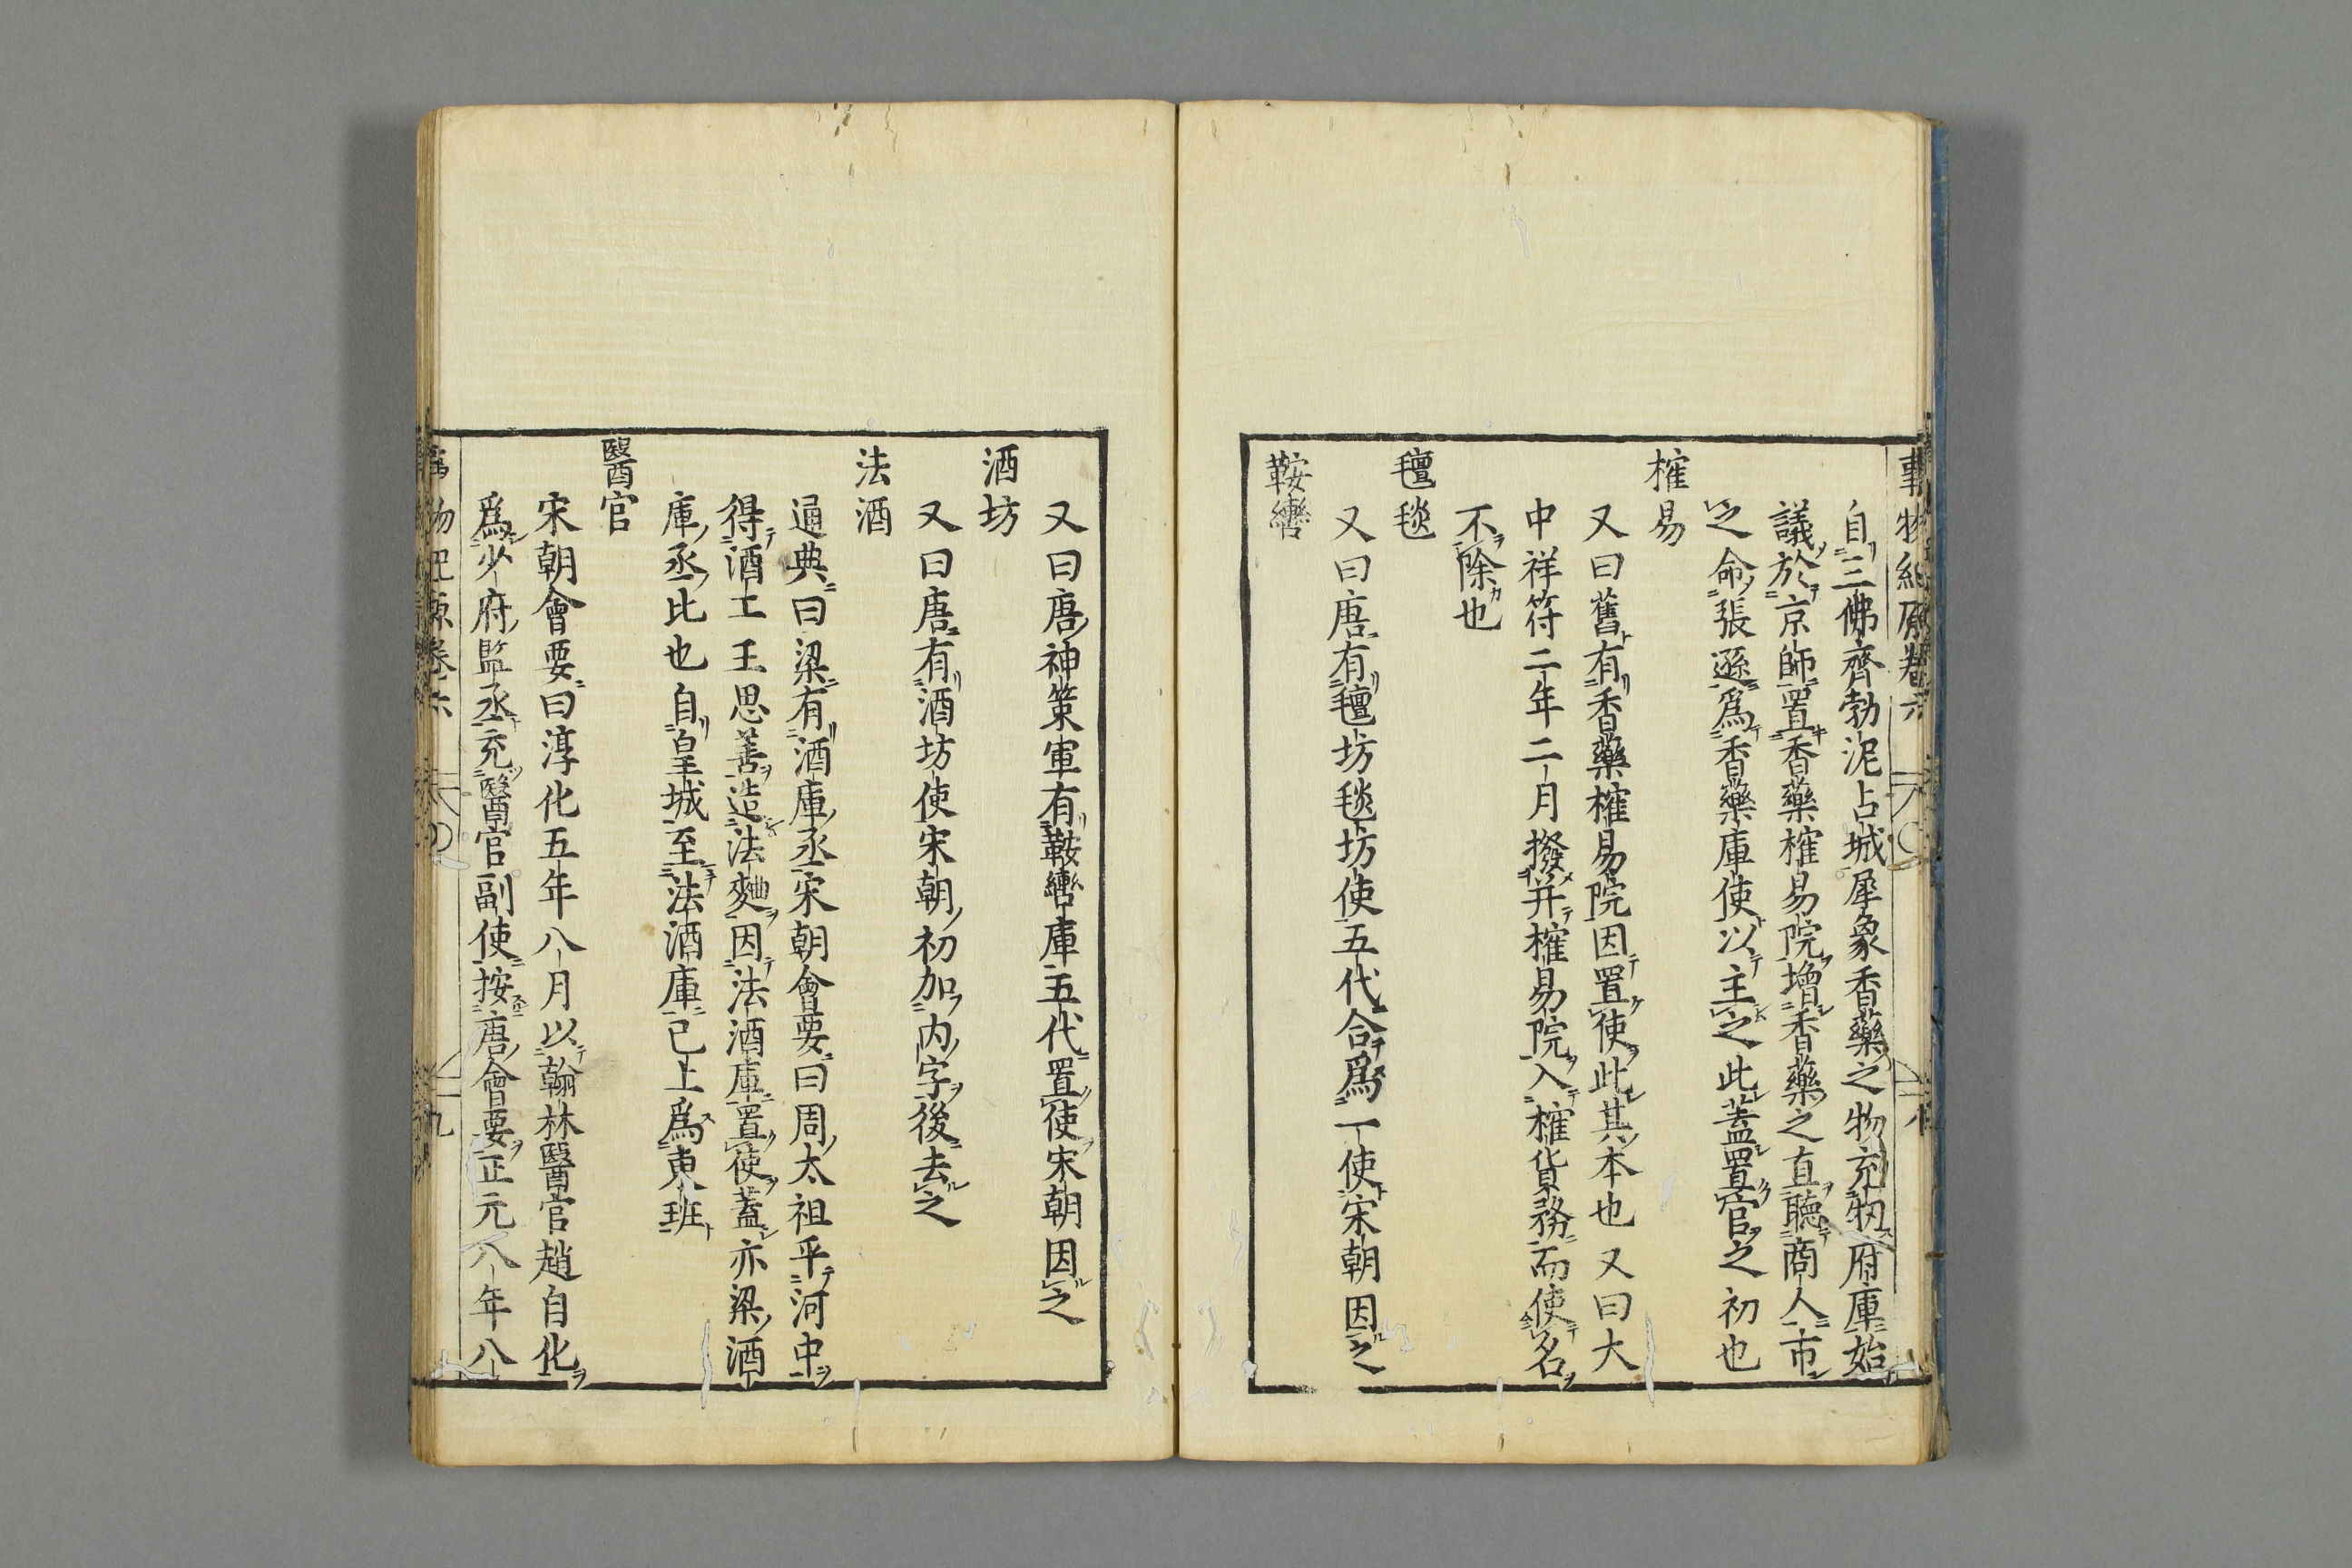 事物紀原卷六
自三佛齊勃泥占城犀象香藥之物充牣府庫始
議於京師置香藥榷易院增香藥之直聽商人市
之命張遜爲香藥庫使以主之此蓋置官之初也
榷易
又曰舊有香藥榷易院因置使此其本也又曰大
中祥符二年二月撥并榷易院入榷貨務而使名
不除也
氊毯
又曰唐有氊坊毯坊使五代合爲一使宋朝因之
鞍轡
又曰唐神策軍有鞍轡庫五代置使宋朝因之
酒坊
又曰唐有酒坊使宋朝初加内字後去之
法酒
通典曰梁有酒庫丞宋朝會要曰周太祖平河中
得酒工王思善造法麴因法酒庫置使蓋亦梁酒
庫丞比也自皇城至法酒庫已上爲東班
醫官
宋朝會要曰淳化五年八月以翰林醫官趙自化
爲少府監丞充醫官副使按唐會要正元八年八
物紀原卷六 九